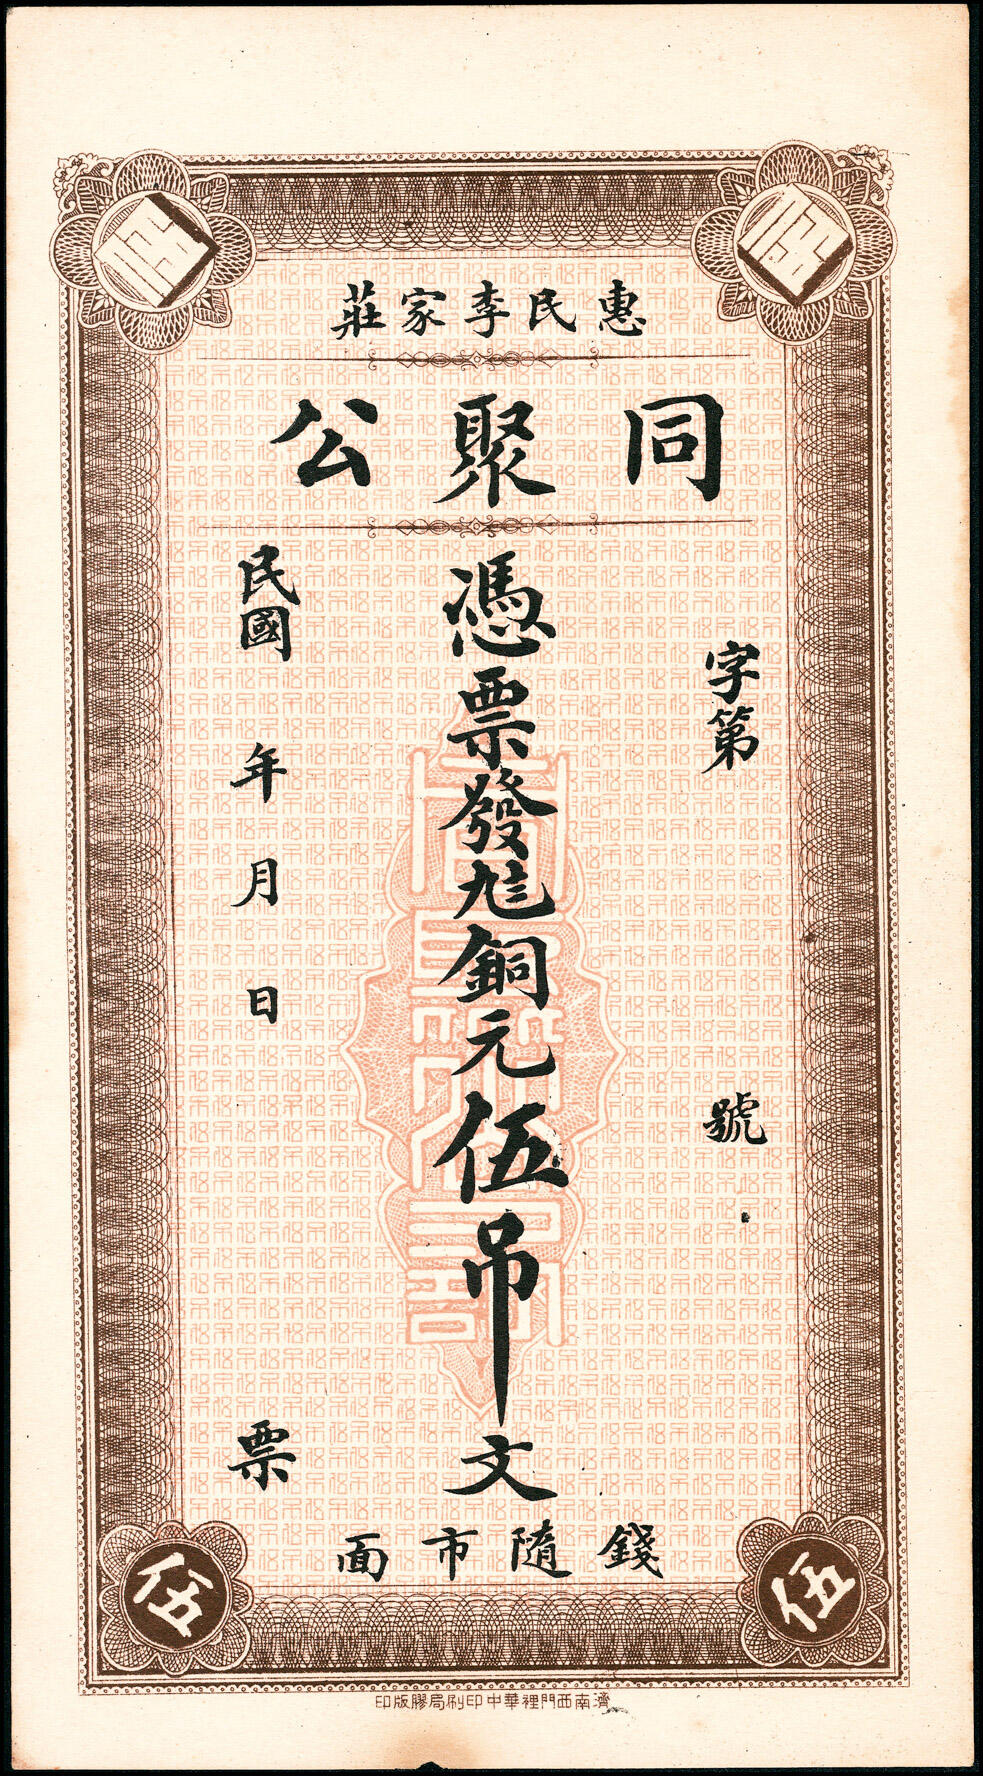 惠民李家莊
同聚公
字第 號
憑票發 銅元伍吊文
民國 年 月 日 票
錢隨市面
伍
伍
濟南西門裡華中印刷局膠版印